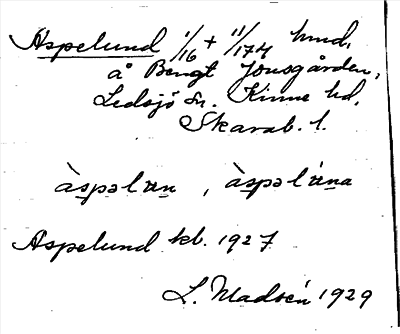 Aspelund 1/16 + 11/174 hmd.
å Bengt Jonsgården,
Ledsjö sn. Kinne hd.
Skarab. l.
àspəlun, àspəlúna
Aspelund kb. 1927
L. Madsén 1929